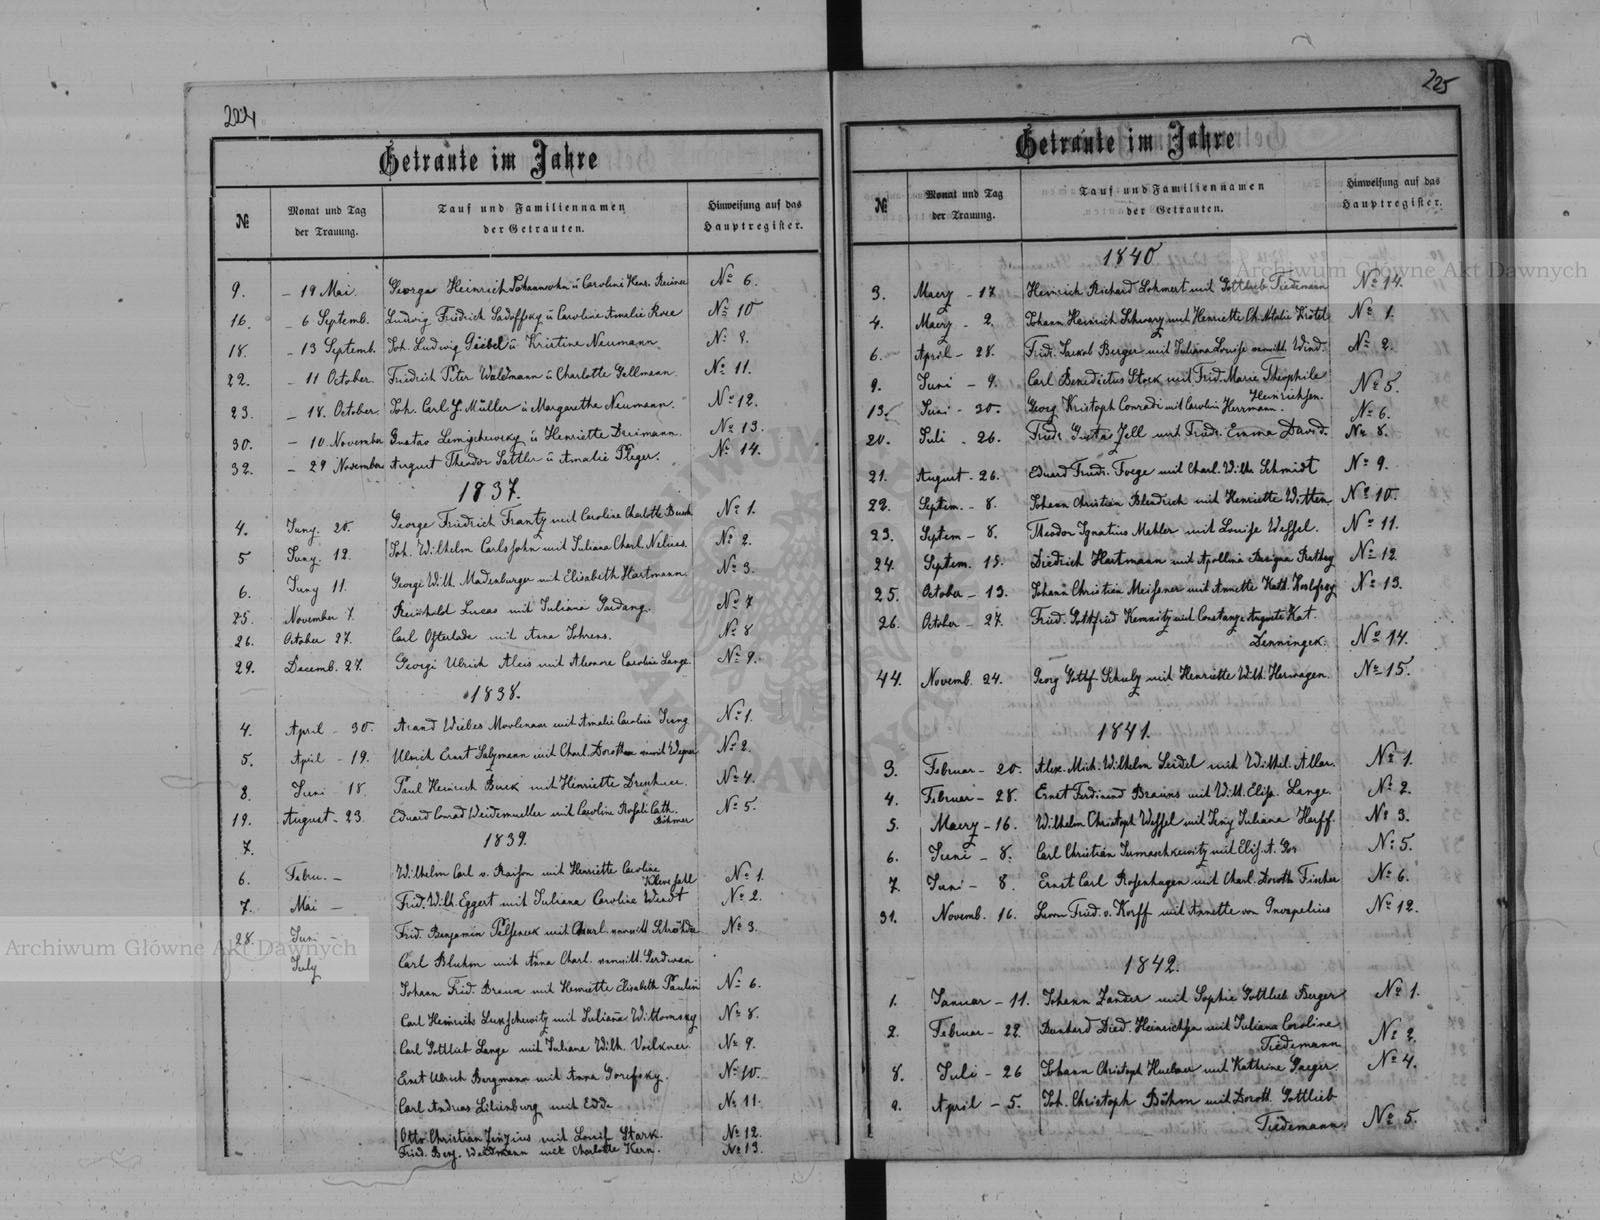 224
Getraute im Jahre
№ Monat und Tag der Trauung. Tauf und Familiennamen der Getrauten. Hinweisung auf das Hauptregister.
9. – 19 Mai. George Heinrich u Caroline Henr. No 6.
16. – 6 Septemb. Ludwig Friedrich Sadoffsky u Caroline Amalie Rose No 10
18. – 13 Septemb. Joh. Ludwig Göebel u Kristine Neumann No 8.
22. – 11 October. Friedrich Peter Waldmann u Charlotte Gellmann No 11.
23. – 18. October. Joh. Carl Müller u Margarethe Neumann. No 12.
30. – 10 November Gustav u Henriette Dreimann. No 13.
32. – 29 November August Theodor Sattler u Amalie Pleger. No 14.
1837.
4. Juny. 20. George Friedrich Frantz mit Caroline Charlotte Busch No 1.
5 Juny. 12. Joh. Wilhelm Carlssohn mit Juliana Charl. Nelius. No 2.
6. Juny 11. George Wilh. Madenburger mit Elisabeth Hartmann. No 3.
25. November 7. Reinhold Lucas mit Juliana Gardang. No 7
26. October 27. Carl Osterlade mit Anna Johrens. No 8
29. Decemb. 27. Georg Ulrich Aleis mit Aleonore Caroline Lange. No 9.
1838.
4. April – 30. Arand Wiebes Moolenaar mit Amalie Caroline Jrang No 1.
5. April – 19. Ulrich Ernst Salzmann mit Charl. Dorothea Wegner No 2.
8. Juni 18. Paul Heinrich Buck mit Henriette No 4.
19. August – 23. Eduard Conrad Weidemueller mit Caroline Rosali Cath. Böhmer No 5.
7. 1839.
6. Febru. – Wilhelm Carl v. Raison mit Henriette Caroline Kleverfahl No 1.
7. Mai – Frid. Wilh. Eggert mit Juliana Caroline Weidt No 2.
28. Juni – Frid. Benjamin mit Charl. No 3.
July Carl Bluhm mit Anna Charl.
Johann Frid. Braun mit Henriette Elisabeth Paulin No 6.
Carl Heinrich Lukschewitz mit Juliana Wittomsky No 8.
Carl Gottlieb Lange mit Juliana Wilh. Voelkner No 9.
Ernst Ulrich Bergmann mit Anna Gorefsky. No 10.
Carl Andreas Lilienburg mit Edde No 11.
Otto Christian mit Louise Stark. No 12.
Fried. Benj. Weidmann mit Charlotte Kern. No 13.
225
Getraute im Jahre
№ Monat und Tag der Trauung. Tauf und Familiennamen der Getrauten. Hinweisung auf das Hauptregister.
1840
3. Maerz – 17 Heinrich Richard Lohmert mit Gottlieb Tiedemann No 14.
4. Maerz – 2. Johann Heinrich Schwarz mit Henriette Ch. Natalie No 1.
6. April – 28. Fridr. Jacob Berger mit Juliana Louise Wind. No 2.
9. Juni – 9. Carl Benedictus Stock mit Frid. Marie Theophile Heinrichsen. No 5.
13. Juni – 30. Georg Kristoph Conradi mit Carolin Herrmann. No 6.
20. Juli – 26. Friedr. Gustav Jell mit Friedr. Emma David. No 8.
21. August – 26. Eduard Friedr. Foege mit Charl. Wilh. Schmidt No 9.
22. Septem. – 8. Johann Christian Blendrich mit Henriette Witten No 10.
23. Septem – 8. Theodor Ignatius Mehler mit Louise Wessel. No 11.
24. Septem. 15. Diedrich Hartmann mit Apollina Benigna Rathey No 12
25. October – 13. Johann Christian Meissner mit Annette Kath. No 13.
26. October – 27. Fried. Gottfried Kemnitz mit Constanze Auguste Kat. Denningek. No 14.
44. Novemb. 24. Georg Gottf Schulz mit Henriette Wilh. Herwagen. No 15.
1841.
3. Februar – 20. Alex. Mich. Wilhelm Seidel mit Allar. No 1.
4. Februar – 28. Ernst Ferdinand Brauns mit Wilh. Elise. Lange No 2.
5. Maerz – 16. Wilhelm Christoph Wessel mit Jeny Juliana Harff. No 3.
6. Juni – 8. Carl Christian Jumaschkewitz mit Elis. A. No 5.
7. Juni – 8. Ernst Carl Rosenhagen mit Charl. Doroth Fischer No 6.
31. Novemb. 16. Fried. v. Korff mit Annette von Gnospelius No 12.
1842.
1. Januar – 11. Johann Zander mit Sophie Gottlieb Berger No 1.
2. Februar – 22. Bernhard Died. Heinrichsen mit Juliana Caroline Tiedemann No 2.
8. Juli – 26 Johann Christoph Huebner mit Kathrine Jaeger No 4.
9. April – 5. Joh. Christoph Böhm mit Doroth Gottlieb Tiedemann. No 5.
Archiwum Główne Akt Dawnych
Archiwum Główne Akt Dawnych
ARCHIWUM GŁÓWNE AKT DAWNYCH